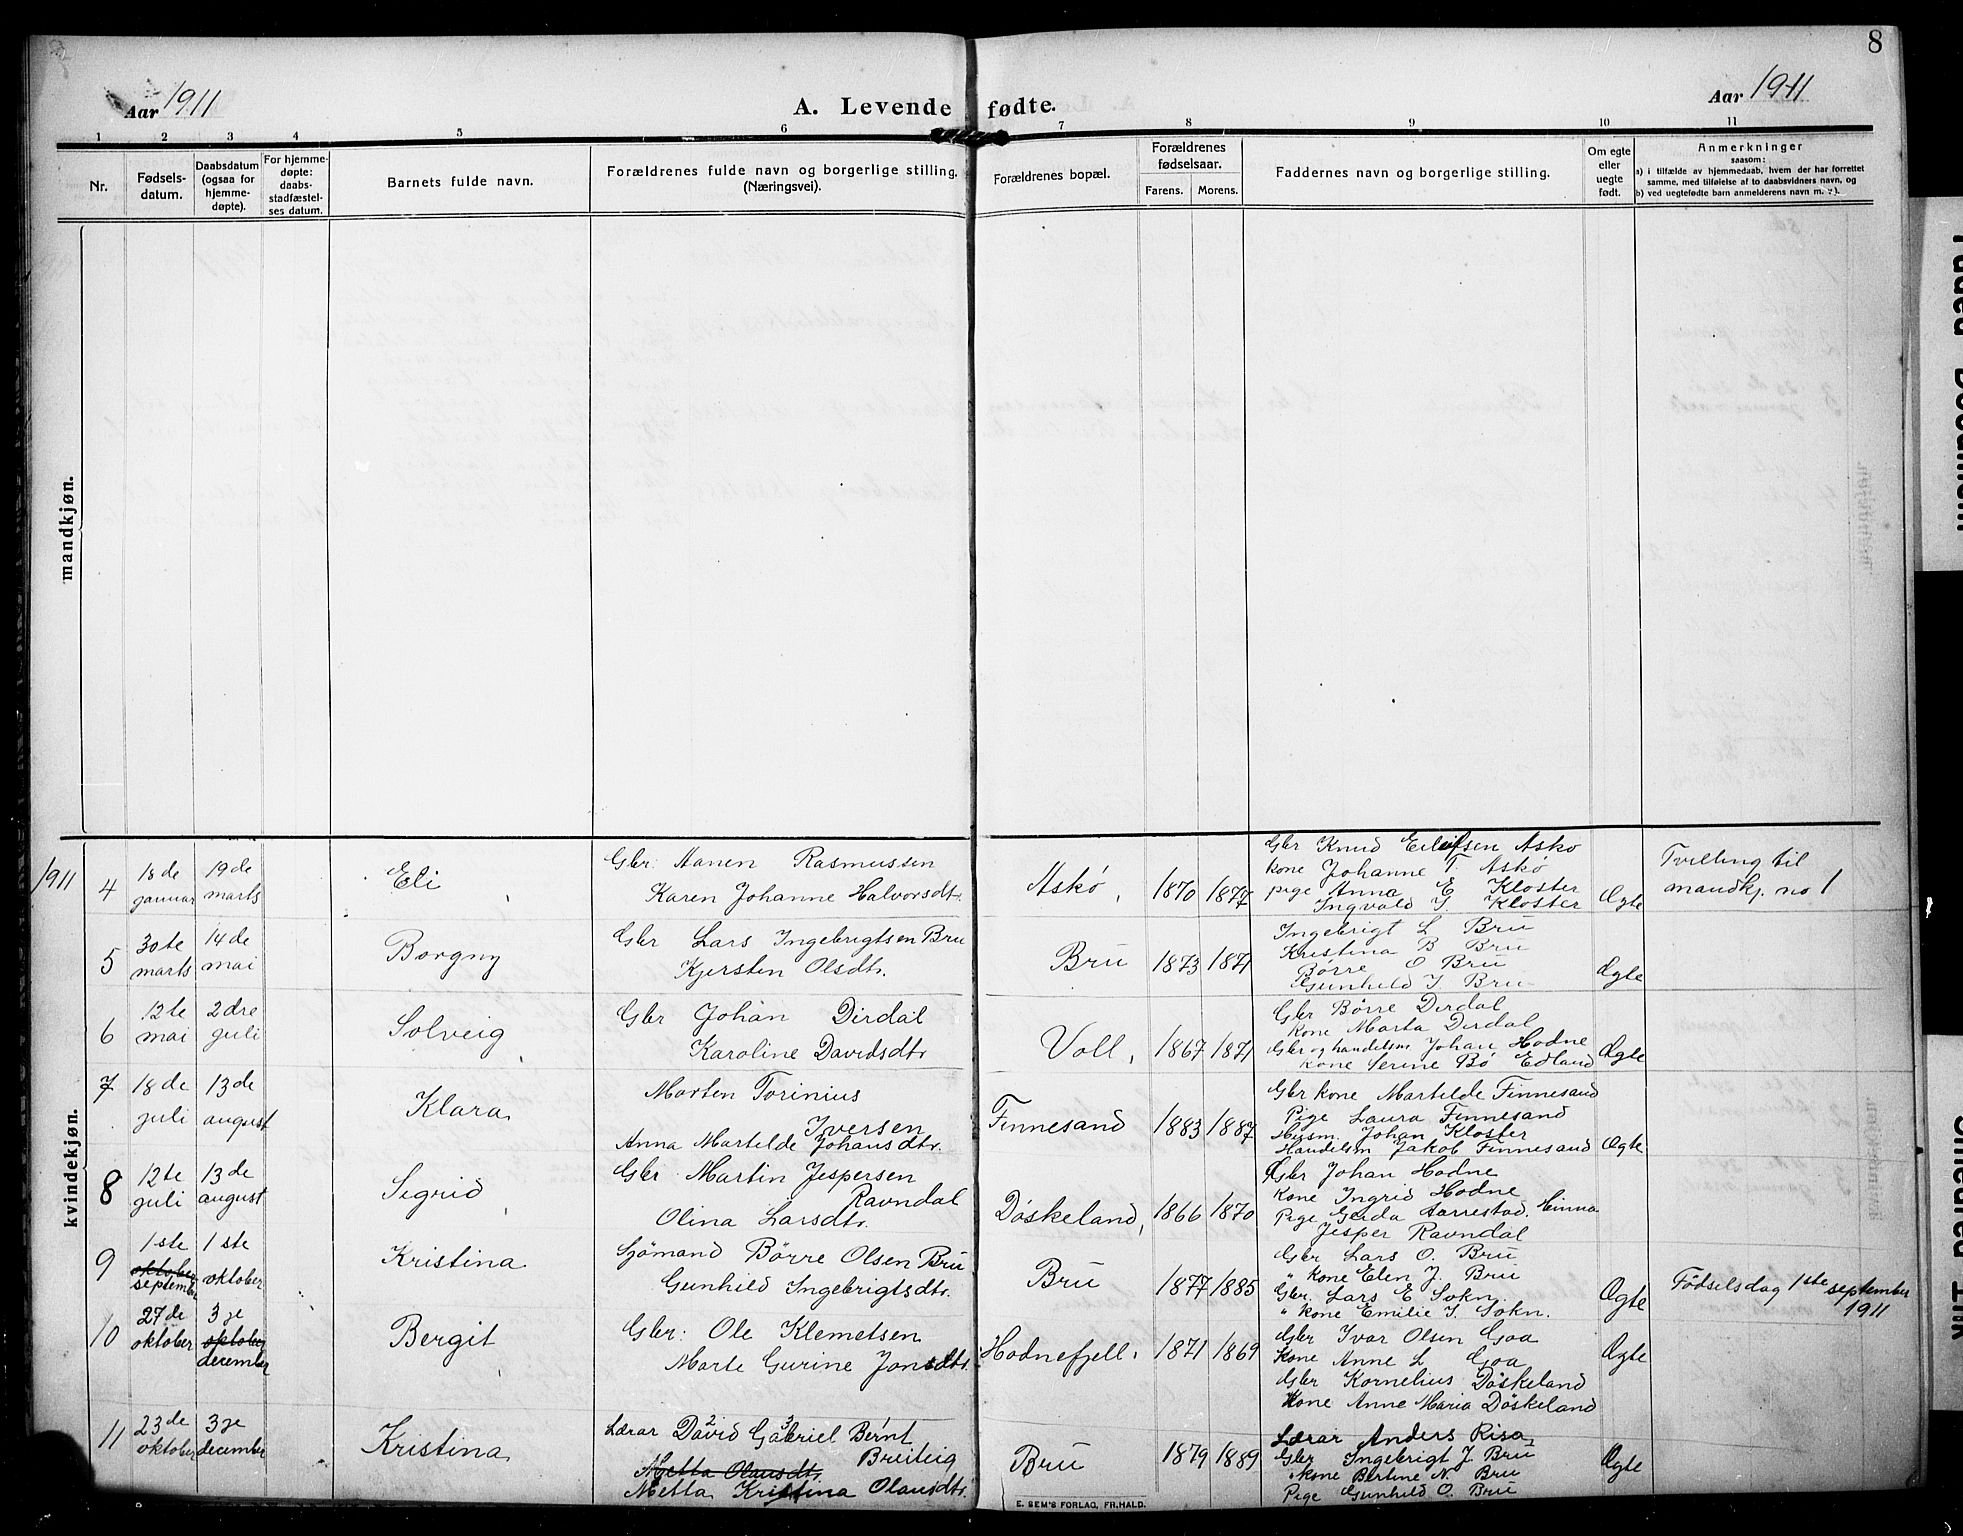 8
Aar 1911
A. Levende fødte.
Aar 1911
1 2 3 4 5 6 7 8 9 10 11
Nr.
Fødsels-
datum.
Daabsdatum
(ogsaa for
hjemme-
døpte).
For hjemme-
døpte:
daabs-
stadfæstel-
ses datum.
Barnets fulde navn.
Forældrenes fulde navn og borgerlige stilling.
(Næringsvei).
Forældrenes bopæl.
Forældrenes
fødselsaar.
Farens. Morens.
Faddernes navn og borgerlige stilling.
Om egte
eller
uegte
født.
Anmerkninger
saasom:
a) i tilfælde av hjemmedaab, hvem der har forrettet
samme, med tilføielse af to daabsvidners navn, og
b) ved uegtefødte barn anmelderens navn m. v.).
mandkjøn.
kvindekjøn.
1911
4
18de
januar
19de
marts
Eli
Gbr. Aanen Rasmussen
Karen Johanne Halvorsdtr.
Askø
1870 1877
Gbr Knud Eilefsen Askø
Kone Johanne T. Askø
pige Anna E Kloster
Ingvald I. Kloster
Ægte
Tvilling til
mandkj. no 1
5
30te
marts
14de
mai
Borgny
Gbr Lars Ingebrigtsen Bru
Kjersten Olsdtr.
Bru
1873 1871
Ingebrigt L Bru
Kristina B Bru
Børre O Bru
Gunhild I. Bru
Ægte
6
12te
mai
2dre
juli
Solveig
Gbr Johan Dirdal
Karoline Davidsdtr
Voll
1867 1871
Gbr Børre Dirdal
Kone Marta Dirdal
Gbr og handelsm. Johan Hodne
Kone Serine Bø Edland
Ægte
7
18de
juli
13de
august
Klara
Morten Torinius
Iversen
Anna Martilde Johansdtr.
Finnesand
1883 1887
Gbr kone Martilde Finnesand
Pige Laura Finnesand
Husm. Johan Kloster
Handelsm Jakob Finnesand
Ægte
8
12te
juli
13de
august
Sigrid
Gbr. Martin Jespersen
Ravndal
Olina Larsdtr.
Døskeland
1866 1870
Gbr Johan Hodne
Kone Ingrid Hodne
Pige Gerda Aarrestad, Hinna
Jesper Ravndal
9
1ste
oktober
september
1ste
oktober
Kristina
Sjømand Børre Olsen Bru
Gunhild Ingebrigtsdtr.
Bru
1877 1885
Gbr Lars O. Bru
" kone Elen J. Bru
Gbr. Lars E Sokn.
" kone Emilie I. Sokn.
Ægte
Fødselsdag 1ste september
1911
10
27de
oktober
3je
oktober
december
Bergit
Gbr: Ole Klemetsen
Marte Gurine Jonsdtr.
Hodnefjell
1871 1869
Gbr Ivar Olsen Goa
Kone Anne L Goa
Gbr Kornelius Døskeland
Kone Anne Maria Døskeland
Ægte
11
23de
oktober
3je
december
Kristina
Lærar David 2 Gabriel 3 Bernt
Breiteig
Metta Olausdtr.
Metta Kristina Olausdtr.
Bru
1879 1889
Lærar Anders Risa
Gbr Ingebrigt J. Bru
" kone Bertine N. Bru
Pige Gunhild O. Bru
Ægte
E. SEM'S FORLAG, FR.HALD.